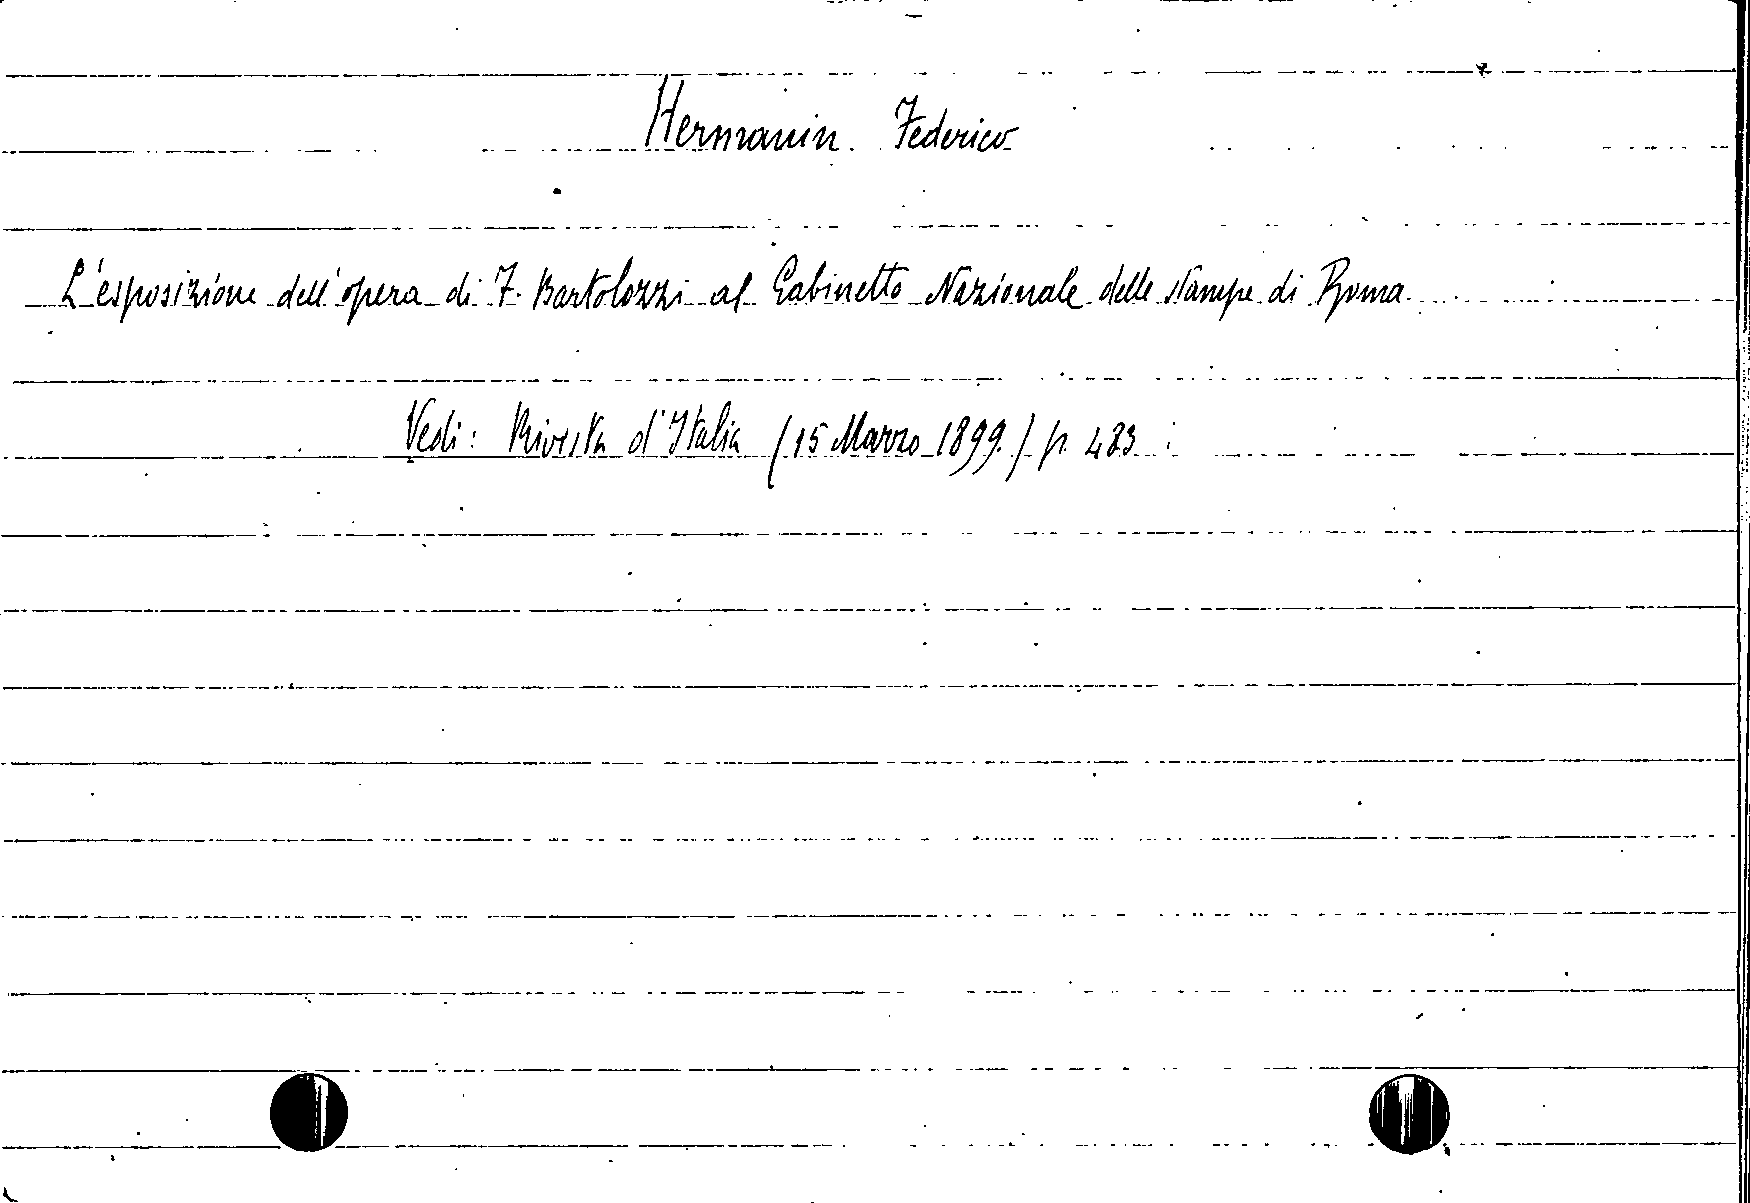 Hermanin Federico
L'esposizione dell'opera di F. Bartolozzi al Gabinetto Nazionale delle stampe di Roma
Vedi: Rivista d'Italia (15 Marzo 1899.) p. 483